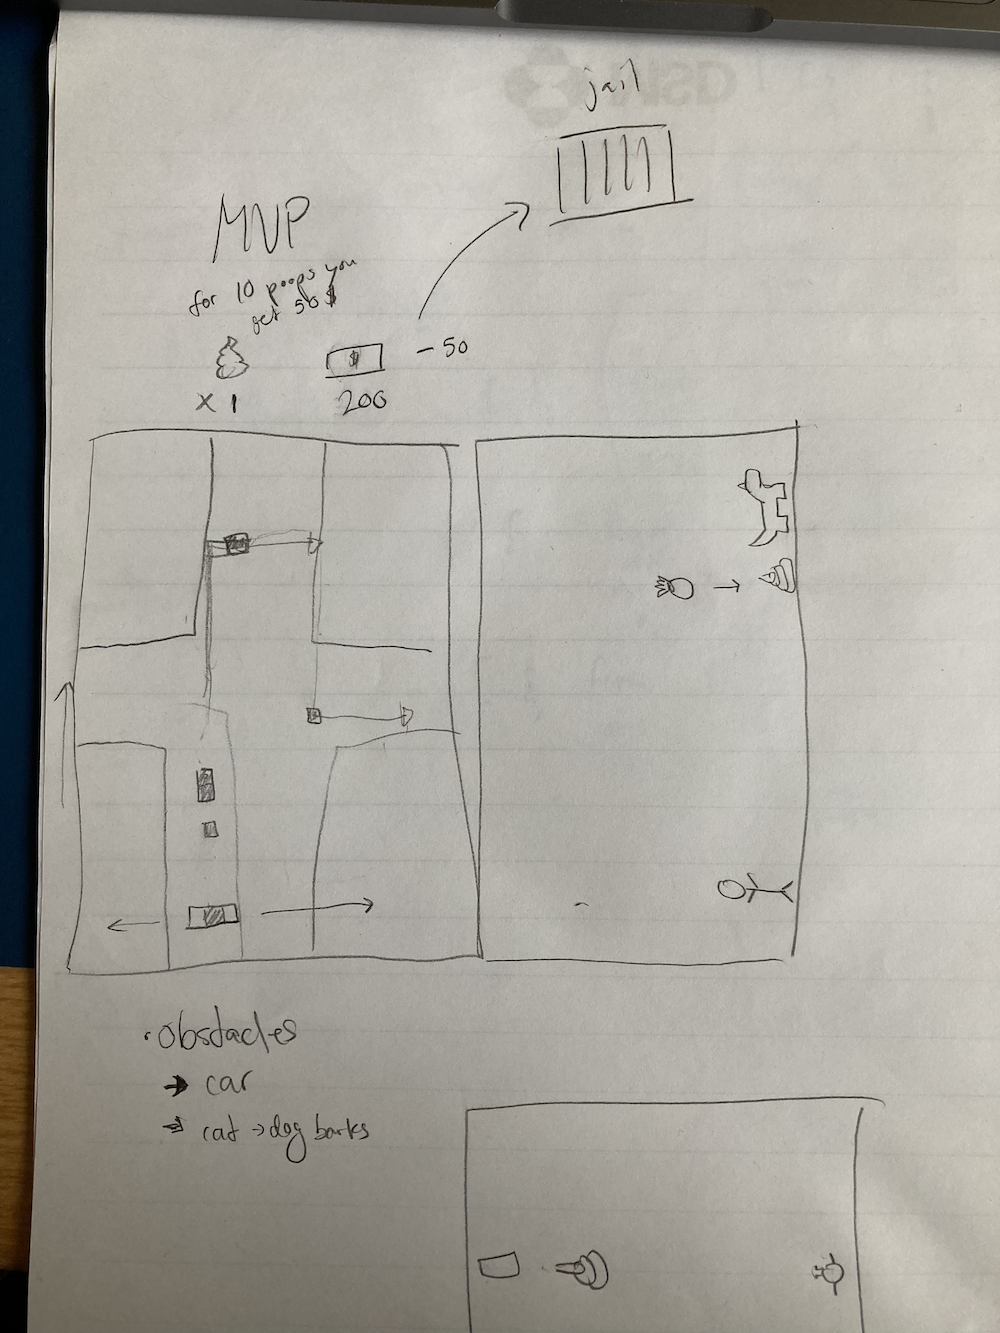 jail
MVP
for 10 poops you
get 50$
$
- 50
x 1
200
• obstacles
→ car
→ cat → dog barks